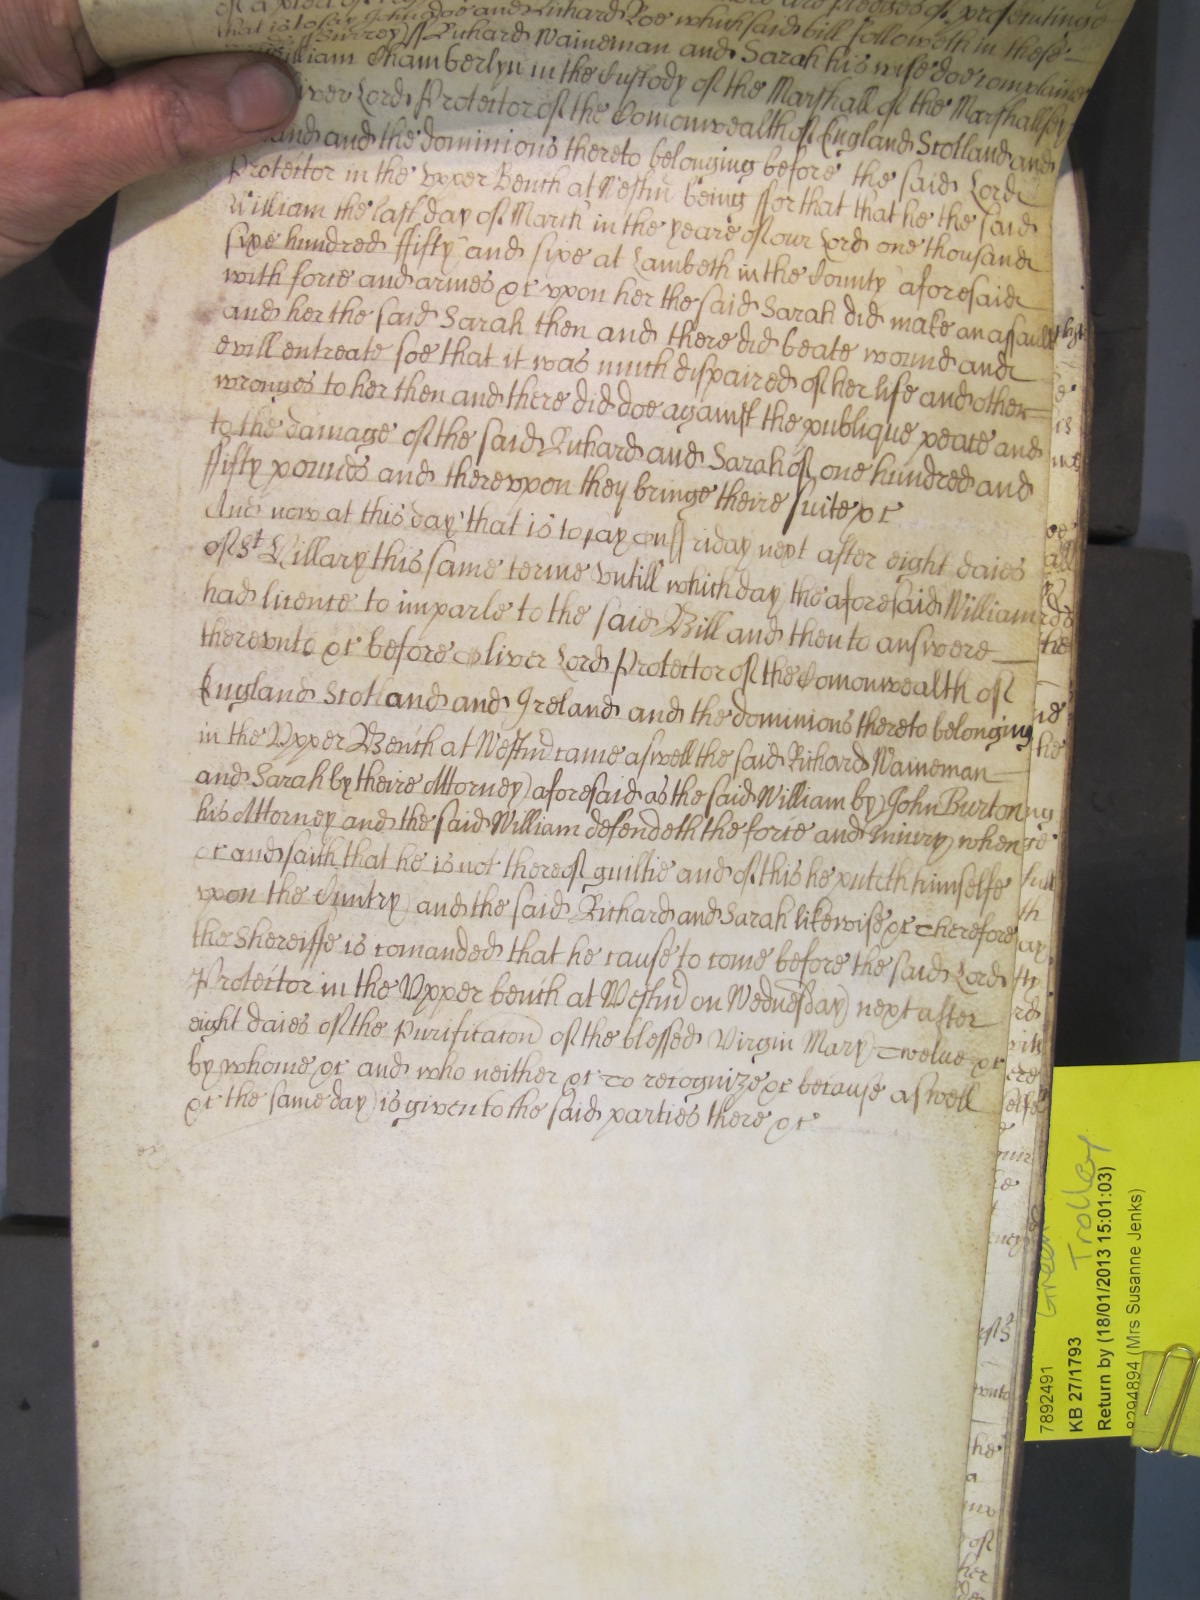 of a plea of are pledges of prosecutinge
that is to say John Doe and Richard Roe which said bill followeth in these
Surrey ss Richard Waineman and Sarah his wife doe complaine
William Chamberlyn in the Custody of the Marshall of the Marshallsey
Lord Protector of the Comonwealth of England Scotland and
and the dominions thereto belonging before the said Lord
Protector in the Vpper Bench at Westm̄ being ffor that that he the said
William the last day of March in the yeare of our Lord one thousand
sixe hundred ffifty and sixe at Lambeth in the County aforesaid
with force and armes &c vpon her the said Sarah did make an assault
and her the said Sarah then and there did beate wound and
evill entreate soe that it was much dispaired of her life and other
wronges to her then and there did doe against the publique peace and
to the damage of the said Richard and Sarah of one hundred and
ffifty pounds and therevpon they bringe theire suite &c
And now at this day that is to say on ffriday next after eight daies
of St Hillary this same terme vntill which day the aforesaid William
had licence to imparle to the said Bill and then to answere
therevnto &c before Oliver Lord Protector of the Comonwealth of
England Scotland and Ireland and the dominions thereto belonging
in the Vpper Bench at Westm̄ came aswell the said Richard Waineman
and Sarah by theire Attorney aforesaid as the said William by John Burton
his Attorney and the said William defendeth the force and iniury when
&c and saith that he is not thereof guiltie and of this he putteth himselfe
vpon the Cuntry and the said Richard and Sarah likewise &c Therefore
the Shereiffe is comanded that he cause to come before the said Lord
Protector in the Vpper bench at Westm̄ on Wednesday next after
eight daies of the Purificacon of the blessed Virgin Mary Twelve &c
by whome &c and who neither &c To recognize &c because aswell
&c the same day is given to the said parties there &c
Green Trolley
7892491
KB 27/1793
Return by (18/01/2013 15:01:03)
8294894 (Mrs Susanne Jenks)